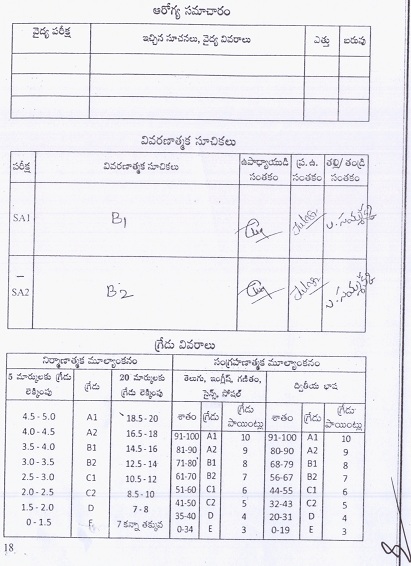 ఆరోగ్య సమాచారం
వైద్య పరీక్ష ఇచ్చిన సూచనలు, వైద్య వివరాలు ఎత్తు బరువు
వివరణాత్మక సూచికలు
పరీక్ష వివరణాత్మక సూచికలు ఉపాధ్యాయుడి సంతకం ప్ర.ఉ. సంతకం తల్లి/ తండ్రి సంతకం
SA1 B1
SA2 B2
గ్రేడు వివరాలు
నిర్మాణాత్మక మూల్యాంకనం సంగ్రహణాత్మక మూల్యాంకనం
5 మార్కులకు గ్రేడు లెక్కింపు గ్రేడు 20 మార్కులకు గ్రేడు లెక్కింపు తెలుగు, ఇంగ్లీష్, గణితం, సైన్స్, సోషల్ ద్వితీయ భాష
శాతం గ్రేడు గ్రేడు పాయింట్లు శాతం గ్రేడు గ్రేడు పాయింట్లు
4.5 - 5.0 A1 18.5 - 20 91-100 A1 10 91-100 A1 10
4.0 - 4.5 A2 16.5 - 18 81-90 A2 9 80-90 A2 9
3.5 - 4.0 B1 14.5 - 16 71-80 B1 8 68-79 B1 8
3.0 - 3.5 B2 12.5 - 14 61-70 B2 7 56-67 B2 7
2.5 - 3.0 C1 10.5 - 12 51-60 C1 6 44-55 C1 6
2.0 - 2.5 C2 8.5 - 10 41-50 C2 5 32-43 C2 5
1.5 - 2.0 D 7 - 8 35-40 D 4 20-31 D 4
0 - 1.5 E 7 కన్నా తక్కువ 0-34 E 3 0-19 E 3
18